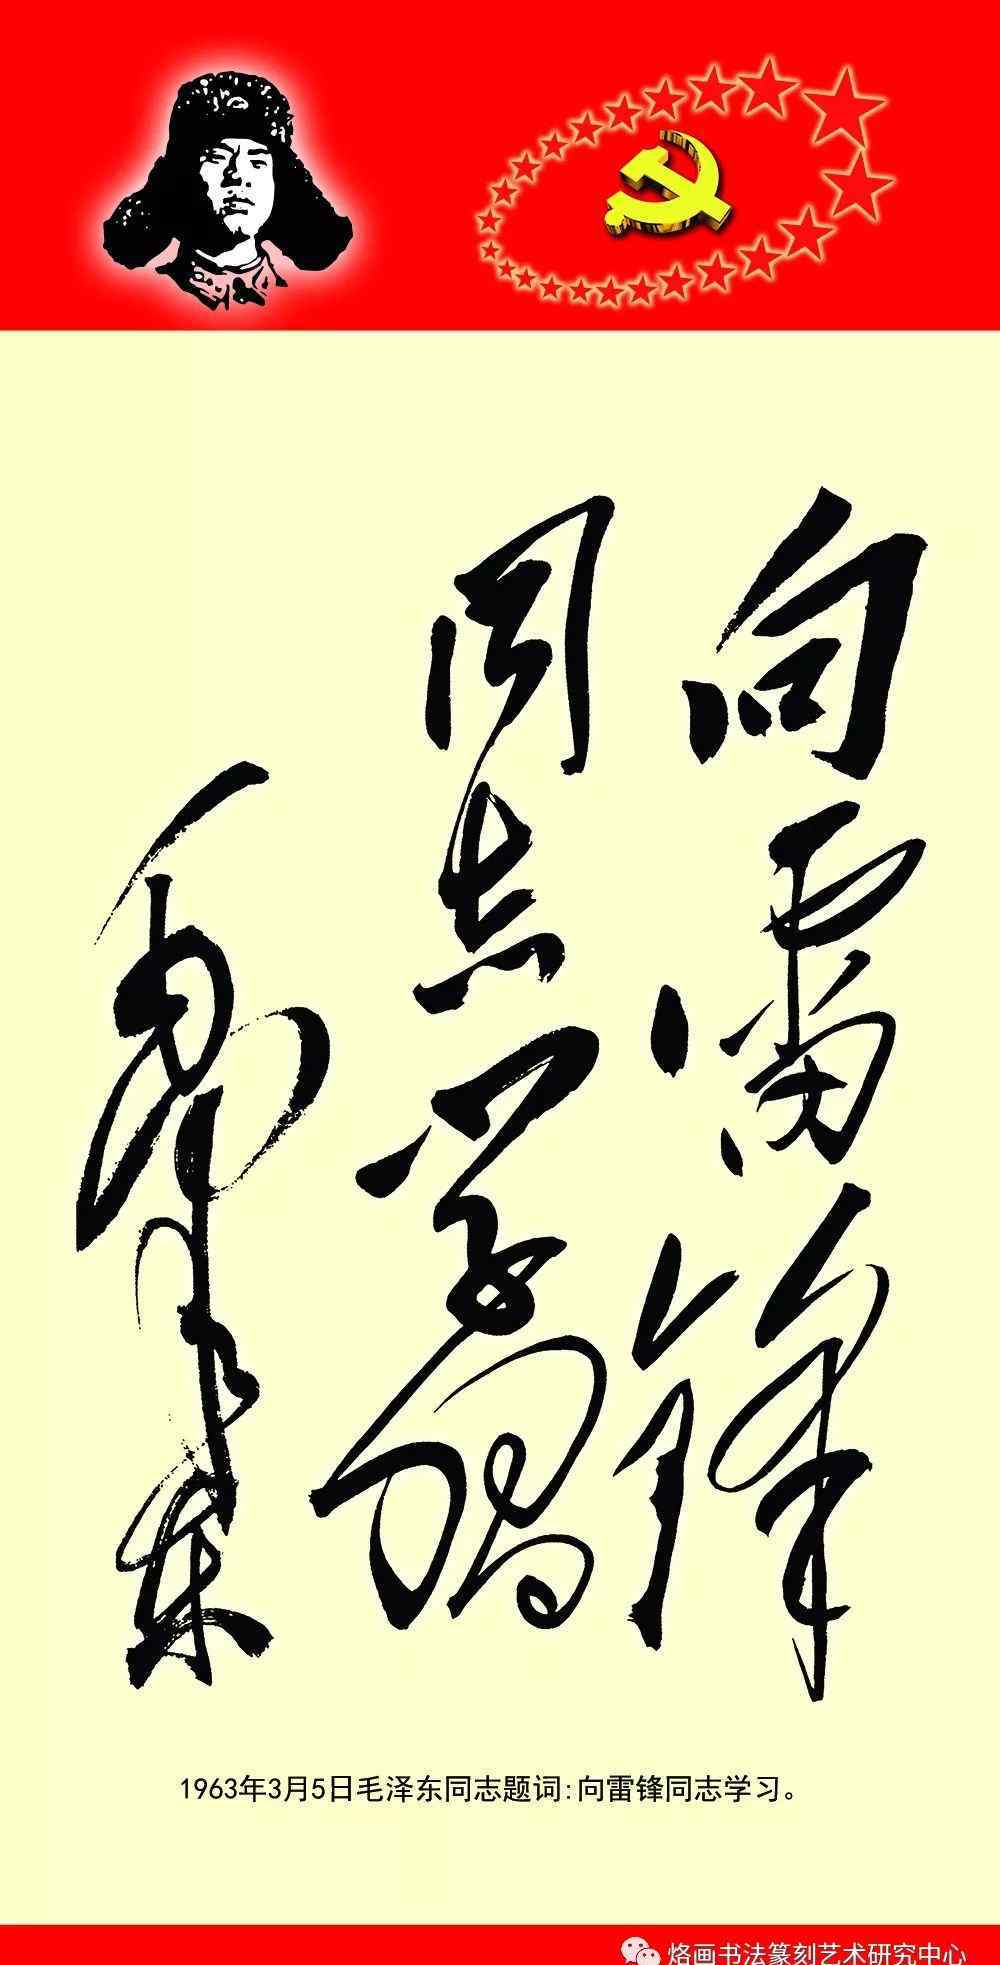 向雷锋
同志学习
毛泽东
1963年3月5日毛泽东同志题词:向雷锋同志学习。
烙画书法篆刻艺术研究中心